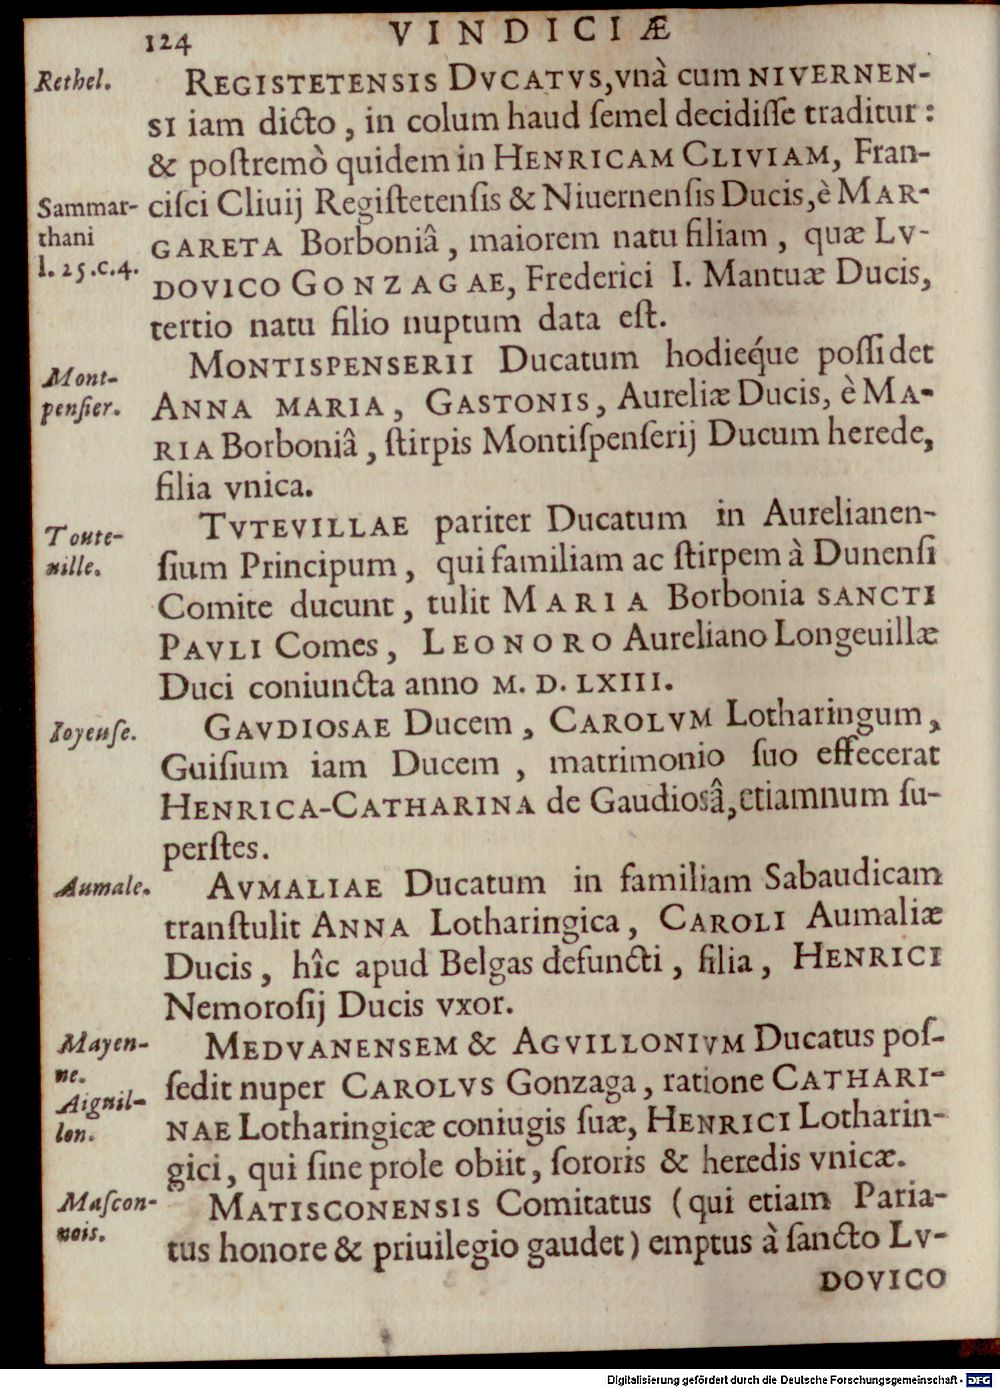 124 VINDICIÆ
Rethel.
REGISTETENSIS DVCATVS, vnà cum NIVERNEN-
SI iam dicto, in colum haud ſemel decidiſſe traditur:
& poſtremò quidem in HENRICAM CLIVIAM, Fran-
Sammar-
thani
l. 25. c. 4.
ciſci Cliuij Regiſtetenſis & Niuernenſis Ducis, è MAR-
GARETA Borboniâ, maiorem natu filiam, quæ LV-
DOVICO GONZAGAE, Frederici I. Mantuæ Ducis,
tertio natu filio nuptum data eſt.
Mont-
penſier.
MONTISPENSERII Ducatum hodieq́ue poſſidet
ANNA MARIA, GASTONIS, Aureliæ Ducis, è MA-
RIA Borboniâ, ſtirpis Montiſpenſerij Ducum herede,
filia vnica.
Toute-
uille.
TVTEVILLAE pariter Ducatum in Aurelianen-
ſium Principum, qui familiam ac ſtirpem à Dunenſi
Comite ducunt, tulit MARIA Borbonia SANCTI
PAVLI Comes, LEONORO Aureliano Longeuillæ
Duci coniuncta anno M. D. LXIII.
Ioyeuſe.
GAVDIOSAE Ducem, CAROLVM Lotharingum,
Guiſium iam Ducem, matrimonio ſuo effecerat
HENRICA-CATHARINA de Gaudiosâ, etiamnum ſu-
perſtes.
Aumale.
AVMALIAE Ducatum in familiam Sabaudicam
tranſtulit ANNA Lotharingica, CAROLI Aumaliæ
Ducis, hîc apud Belgas defuncti, filia, HENRICI
Nemoroſij Ducis vxor.
Mayen-
ne.
Aiguil-
lon.
MEDVANENSEM & AGVILLONIVM Ducatus poſ-
ſedit nuper CAROLVS Gonzaga, ratione CATHARI-
NAE Lotharingicæ coniugis ſuæ, HENRICI Lotharin-
gici, qui ſine prole obiit, ſororis & heredis vnicæ.
Maſcon-
nois.
MATISCONENSIS Comitatus (qui etiam Paria-
tus honore & priuilegio gaudet) emptus à ſancto LV-
DOVICO
Digitalisierung gefördert durch die Deutsche Forschungsgemeinschaft - DFG